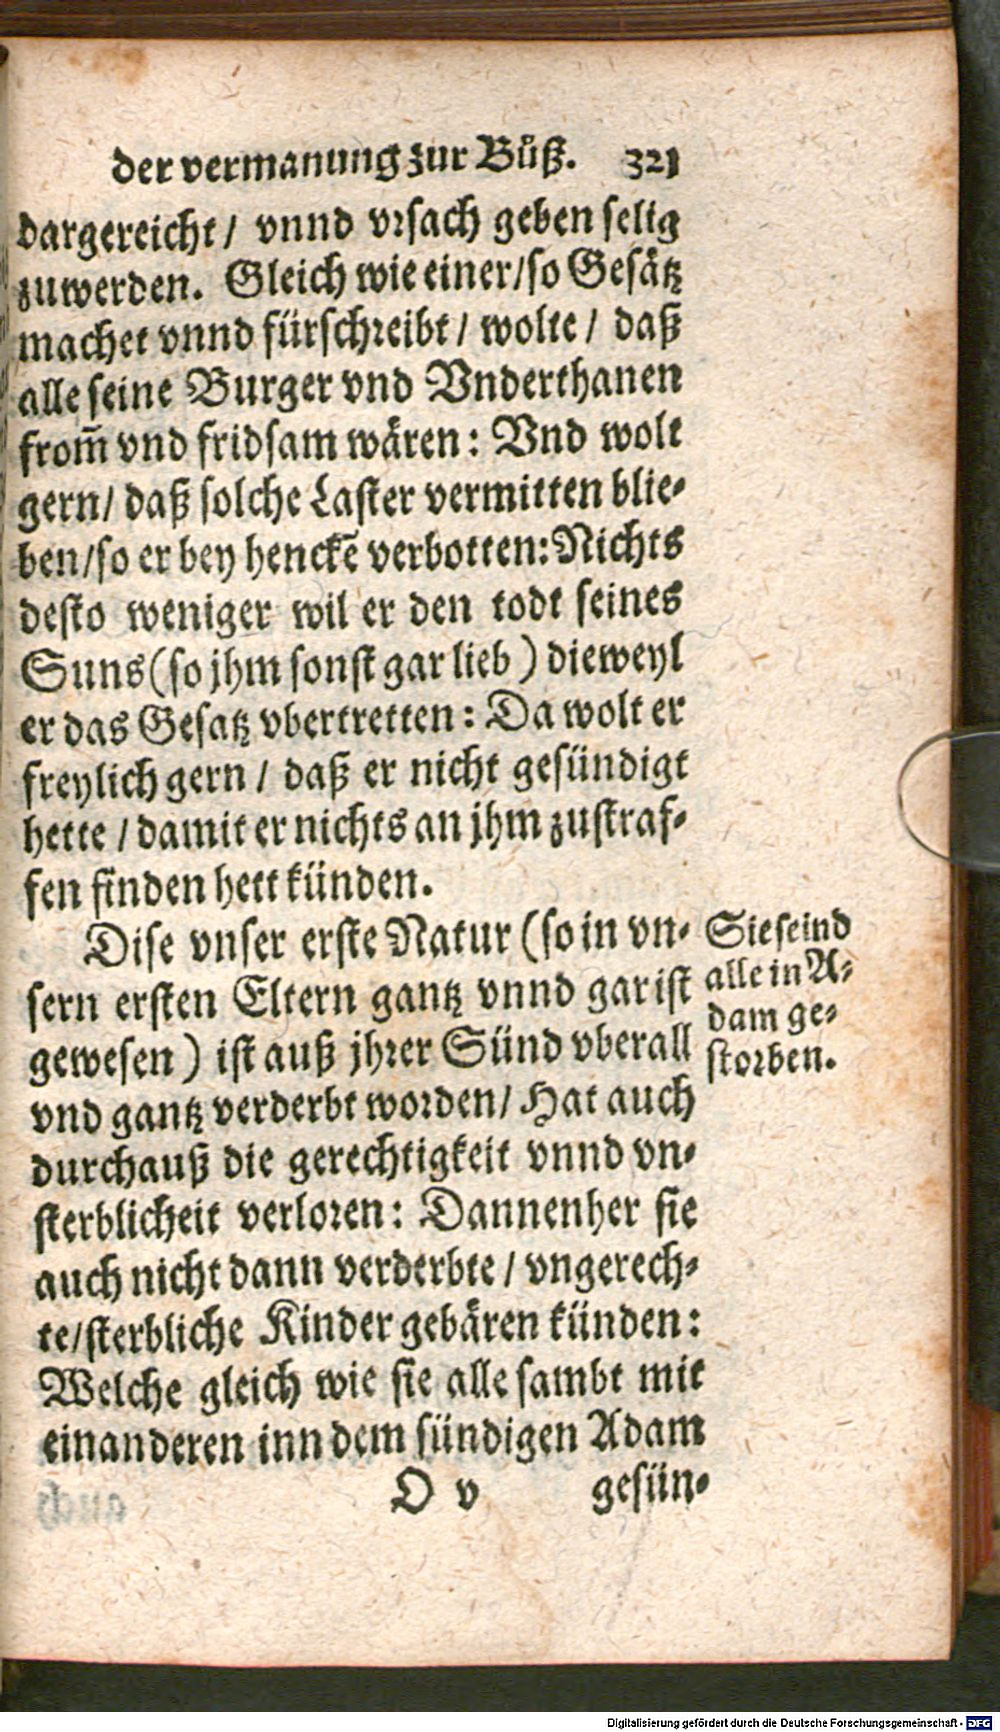 der vermanung zur Bůß. 321
dargereicht / vnnd vrsach geben selig
zuwerden. Gleich wie einer/so Gesätz
machet vnnd fürschreibt / wolte / daß
alle seine Burger vnd Vnderthanen
from̃ vnd fridsam wären: Vnd wolt
gern/ daß solche Laster vermitten blie-
ben/so er bey henckē verbotten: Nichts
desto weniger wil er den todt seines
Suns (so jhm sonst gar lieb) dieweyl
er das Gesatz vbertretten: Da wolt er
freylich gern / daß er nicht gesündigt
hette / damit er nichts an jhm zustraf-
fen finden hett künden.
Dise vnser erste Natur (so in vn-
sern ersten Eltern gantz vnnd gar ist
gewesen) ist auß jhrer Sünd vberall
vnd gantz verderbt worden/ Hat auch
durchauß die gerechtigkeit vnnd vn-
sterblicheit verloren: Dannenher sie
auch nicht dann verderbte / vngerech-
te/sterbliche Kinder gebären künden:
Welche gleich wie sie alle sambt mit
einanderen inn dem sündigen Adam
O v gesün-
Sie seind
alle in A-
dam ge-
storben.
Digitalisierung gefördert durch die Deutsche Forschungsgemeinschaft - DFG